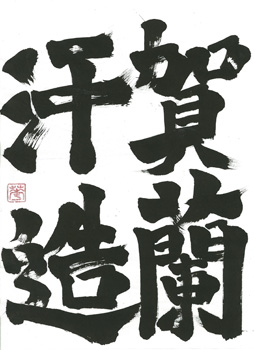 賀蘭
汗造